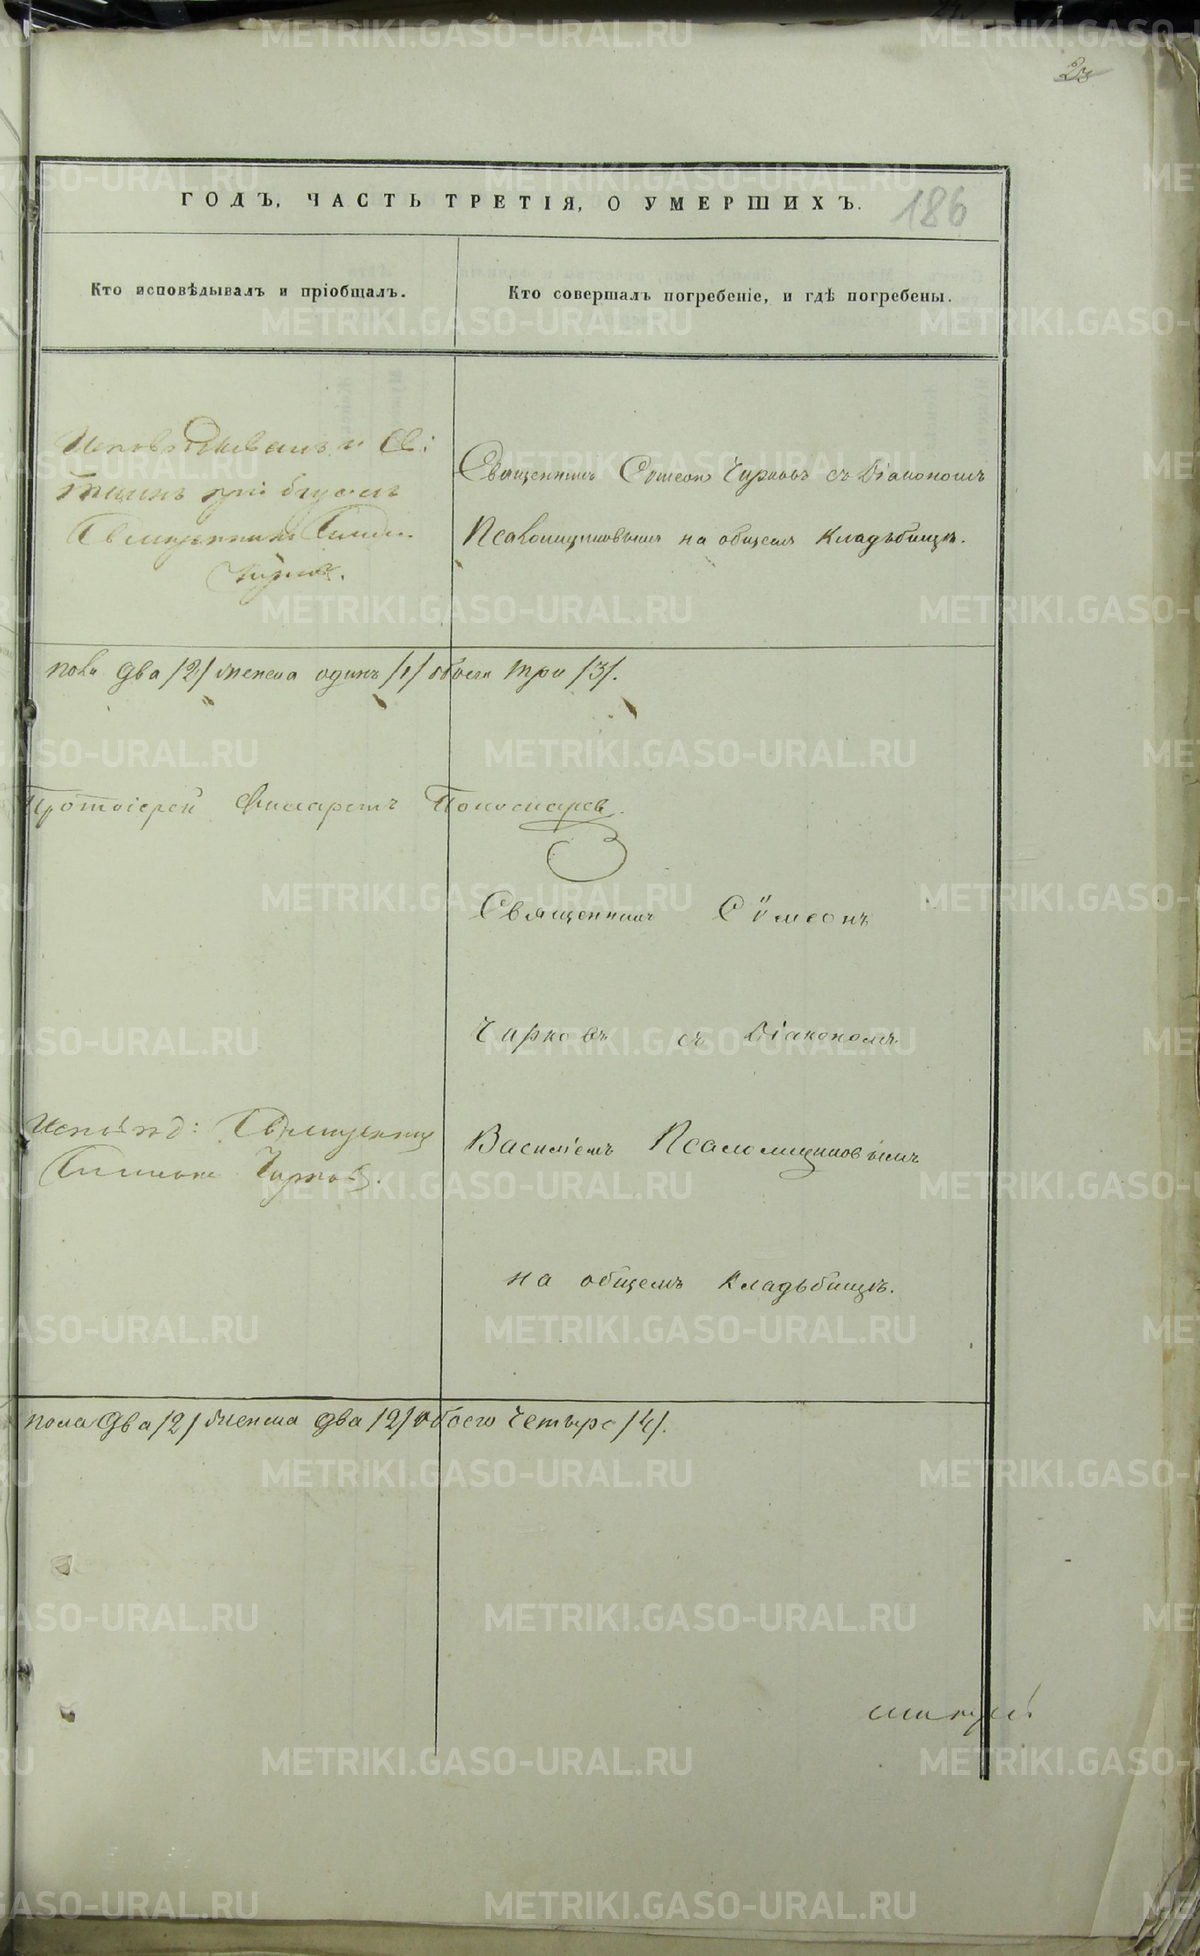 ГОДЪ, ЧАСТЬ ТРЕТІЯ, О УМЕРШИХЪ.
186
Кто исповѣдывалъ и пріобщалъ.
Кто совершалъ погребеніе, и гдѣ погребены.
Исповѣдывалъ и Св:
Тайнъ пріобщалъ
Священникъ
Чирковъ.
Священникъ Сѵмеонъ Чирковъ съ Діакономъ
Псаломщиковымъ на общемъ Кладьбищѣ.
пола два /2/ женска одинъ /1/ обоего три /3/.
Протоіерей Филаретъ Пономаревъ.
Священникъ Сѵмеонъ
Чирковъ съ Діакономъ
Испов. Священникъ
Симеонъ Чирковъ.
Василіемъ Псаломщиковымъ
на общемъ Кладьбищѣ.
пола два /2/ женска два /2/ обоего четыре /4/.
METRIKI.GASO-URAL.RU